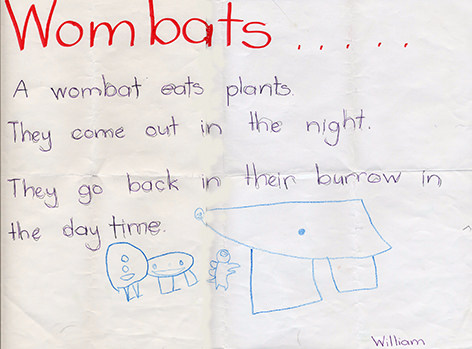 Wombats .....
A wombat eats plants.
They come out in the night.
They go back in their burrow in
the day time.
William